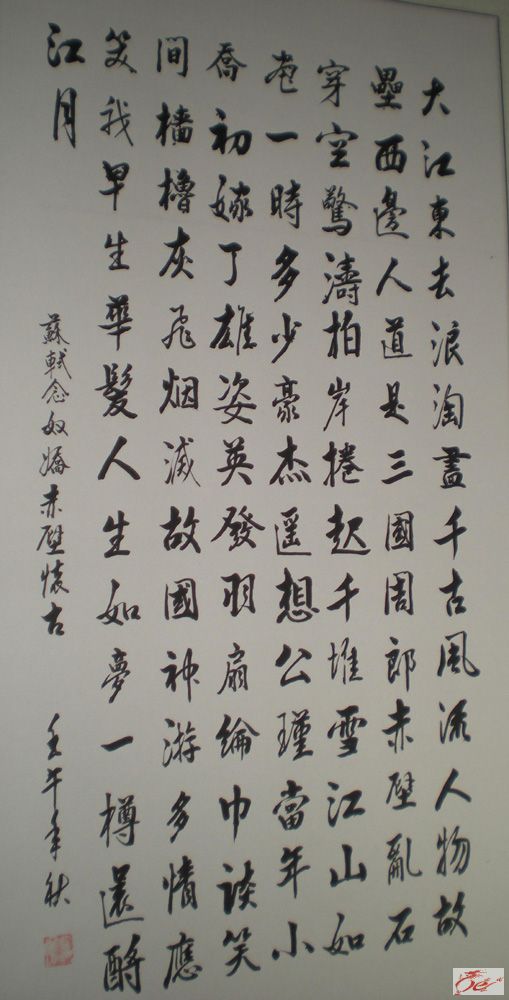 大江東去浪淘盡千古風流人物故
壘西邊人道是三國周郎赤壁亂石
穿空驚濤拍岸捲起千堆雪江山如
畫一時多少豪杰遥想公瑾當年小
喬初嫁了雄姿英發羽扇綸巾談笑
間檣櫓灰飛烟滅故國神游多情應
笑我早生華髮人生如夢一樽還酹
江月
蘇軾念奴嬌赤壁懷古 壬午年秋